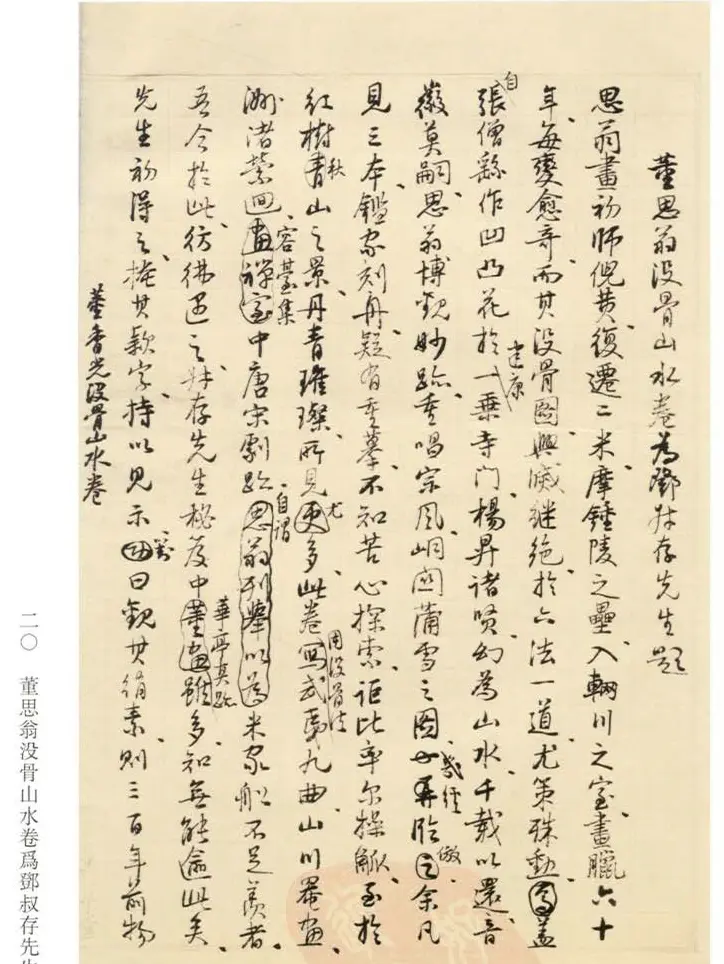 董思翁没骨山水卷為鄧叔存先生題
思翁畫初師倪黄復遷二米摩鍾陵之壘入輞川之室畫臘六十
年每變愈奇而其没骨圖興滅繼絶於六法一道尤策殊勳蓋
自
張僧繇作凹凸花於一乘寺門楊昇諸賢幻為山水千載以還音
建康
徽莫嗣思翁博觀妙跡重唱宗風峒關蒲雪之圖臨之余凡
幾經
倣
見三本鑑家刻舟疑有重摹不知苦心探索詎比率尔操觚至於
紅樹青山之景丹青璀璨所見更多此卷寫武夷九曲山川罨畫
秋
尤
用没骨法
洲渚縈迴畫禪室中唐宋劇跡思翁列舉以為米家船不足羨者
容臺集
自謂
吾今於此彷彿遇之叔存先生秘笈中董畫雖多知無能逾此矣
華亭真跡
先生初得之掩其款字持以見示曰觀其絹素則三百年前物
董香光没骨山水卷
二〇 董思翁没骨山水卷爲鄧叔存先